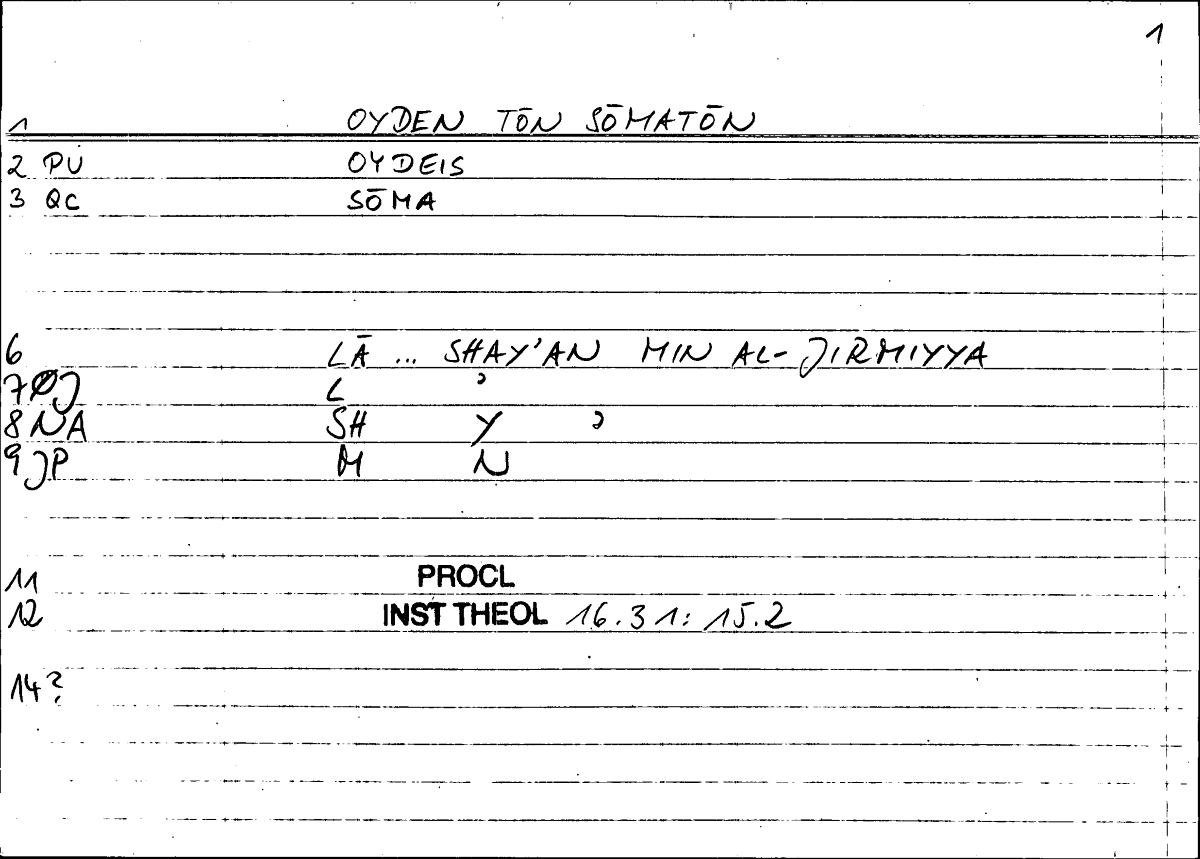 1
1 OYDEN TŌN SŌMATŌN
2 PU OYDEIS
3 QC SŌMA
6 LĀ ... SHAY'AN MIN AL-JIRMIYYA
7 ØJ L ʾ
8 NA SH Y ʾ
9 JP M N
11 PROCL
12 INST THEOL 16.31: 15.2
14?